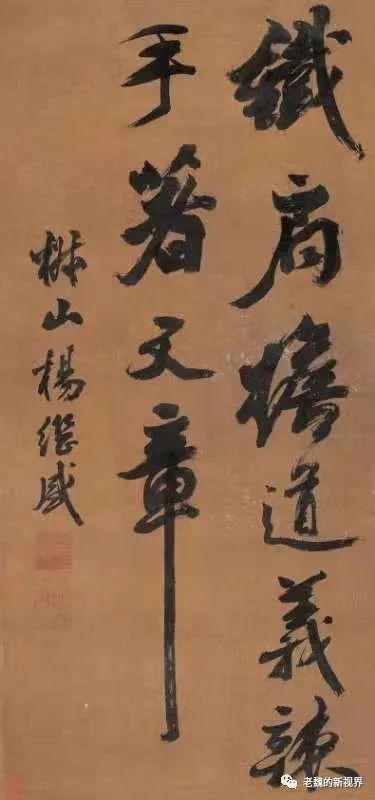 鐵肩擔道義辣
手著文章
椒山楊繼盛
老魏的新视界